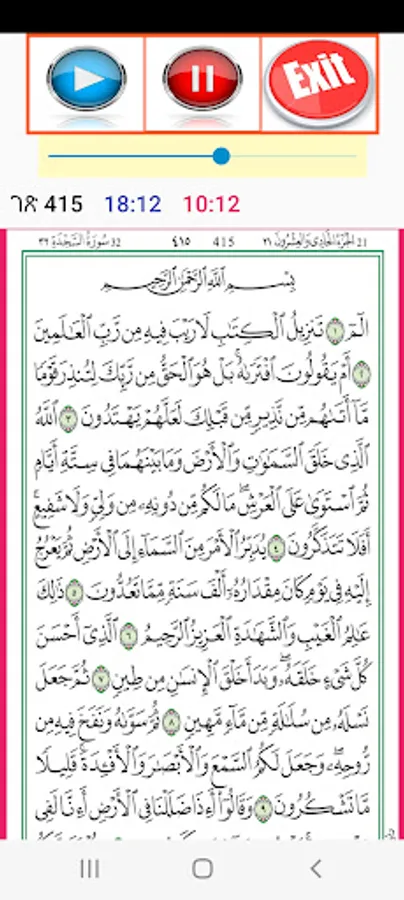 Exit
ገጽ 415 18:12 10:12
21 الجزء الحادي والعشرون ٢١ 415 ٤١٥ 32 سورة السجدة ٣٢
بِسْمِ ٱللَّهِ ٱلرَّحْمَٰنِ ٱلرَّحِيمِ
الٓمٓ ١ تَنزِيلُ ٱلْكِتَٰبِ لَا رَيْبَ فِيهِ مِن رَّبِّ ٱلْعَٰلَمِينَ
٢ أَمْ يَقُولُونَ ٱفْتَرَىٰهُ ۚ بَلْ هُوَ ٱلْحَقُّ مِن رَّبِّكَ لِتُنذِرَ قَوْمًا
مَّآ أَتَىٰهُم مِّن نَّذِيرٍ مِّن قَبْلِكَ لَعَلَّهُمْ يَهْتَدُونَ ٣ ٱللَّهُ
ٱلَّذِى خَلَقَ ٱلسَّمَٰوَٰتِ وَٱلْأَرْضَ وَمَا بَيْنَهُمَا فِى سِتَّةِ أَيَّامٍ
ثُمَّ ٱسْتَوَىٰ عَلَى ٱلْعَرْشِ ۖ مَا لَكُم مِّن دُونِهِۦ مِن وَلِىٍّ وَلَا شَفِيعٍ ۚ
أَفَلَا تَتَذَكَّرُونَ ٤ يُدَبِّرُ ٱلْأَمْرَ مِنَ ٱلسَّمَآءِ إِلَى ٱلْأَرْضِ ثُمَّ يَعْرُجُ
إِلَيْهِ فِى يَوْمٍ كَانَ مِقْدَارُهُۥٓ أَلْفَ سَنَةٍ مِّمَّا تَعُدُّونَ ٥ ذَٰلِكَ
عَٰلِمُ ٱلْغَيْبِ وَٱلشَّهَٰدَةِ ٱلْعَزِيزُ ٱلرَّحِيمُ ٦ ٱلَّذِىٓ أَحْسَنَ
كُلَّ شَىْءٍ خَلَقَهُۥ ۖ وَبَدَأَ خَلْقَ ٱلْإِنسَٰنِ مِن طِينٍ ٧ ثُمَّ جَعَلَ
نَسْلَهُۥ مِن سُلَٰلَةٍ مِّن مَّآءٍ مَّهِينٍ ٨ ثُمَّ سَوَّىٰهُ وَنَفَخَ فِيهِ مِن
رُّوحِهِۦ ۖ وَجَعَلَ لَكُمُ ٱلسَّمْعَ وَٱلْأَبْصَٰرَ وَٱلْأَفْـِٔدَةَ ۚ قَلِيلًا
مَّا تَشْكُرُونَ ٩ وَقَالُوٓا۟ أَءِذَا ضَلَلْنَا فِى ٱلْأَرْضِ أَءِنَّا لَفِى